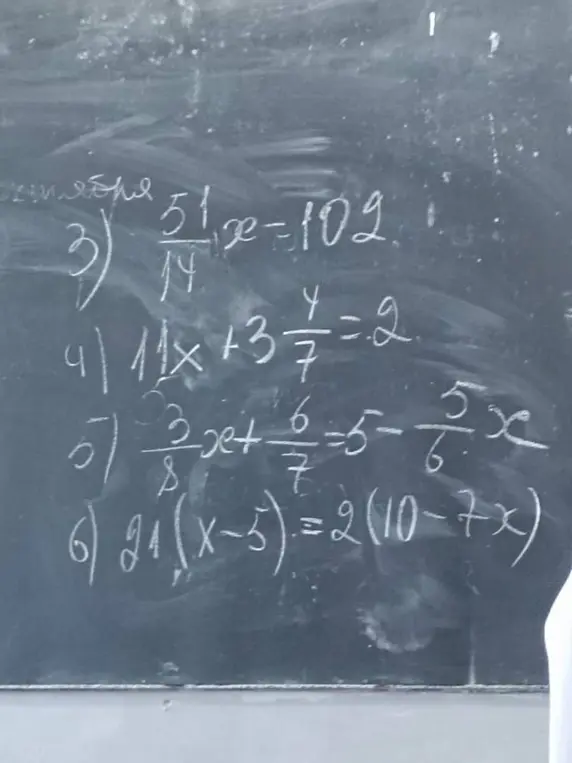 октября
3) 51/14 x = 102
4) 11x + 3 4/7 = 2
5) 3/8 x + 6/7 = 5 - 5/6 x
6) 21(x-5) = 2(10-7x)